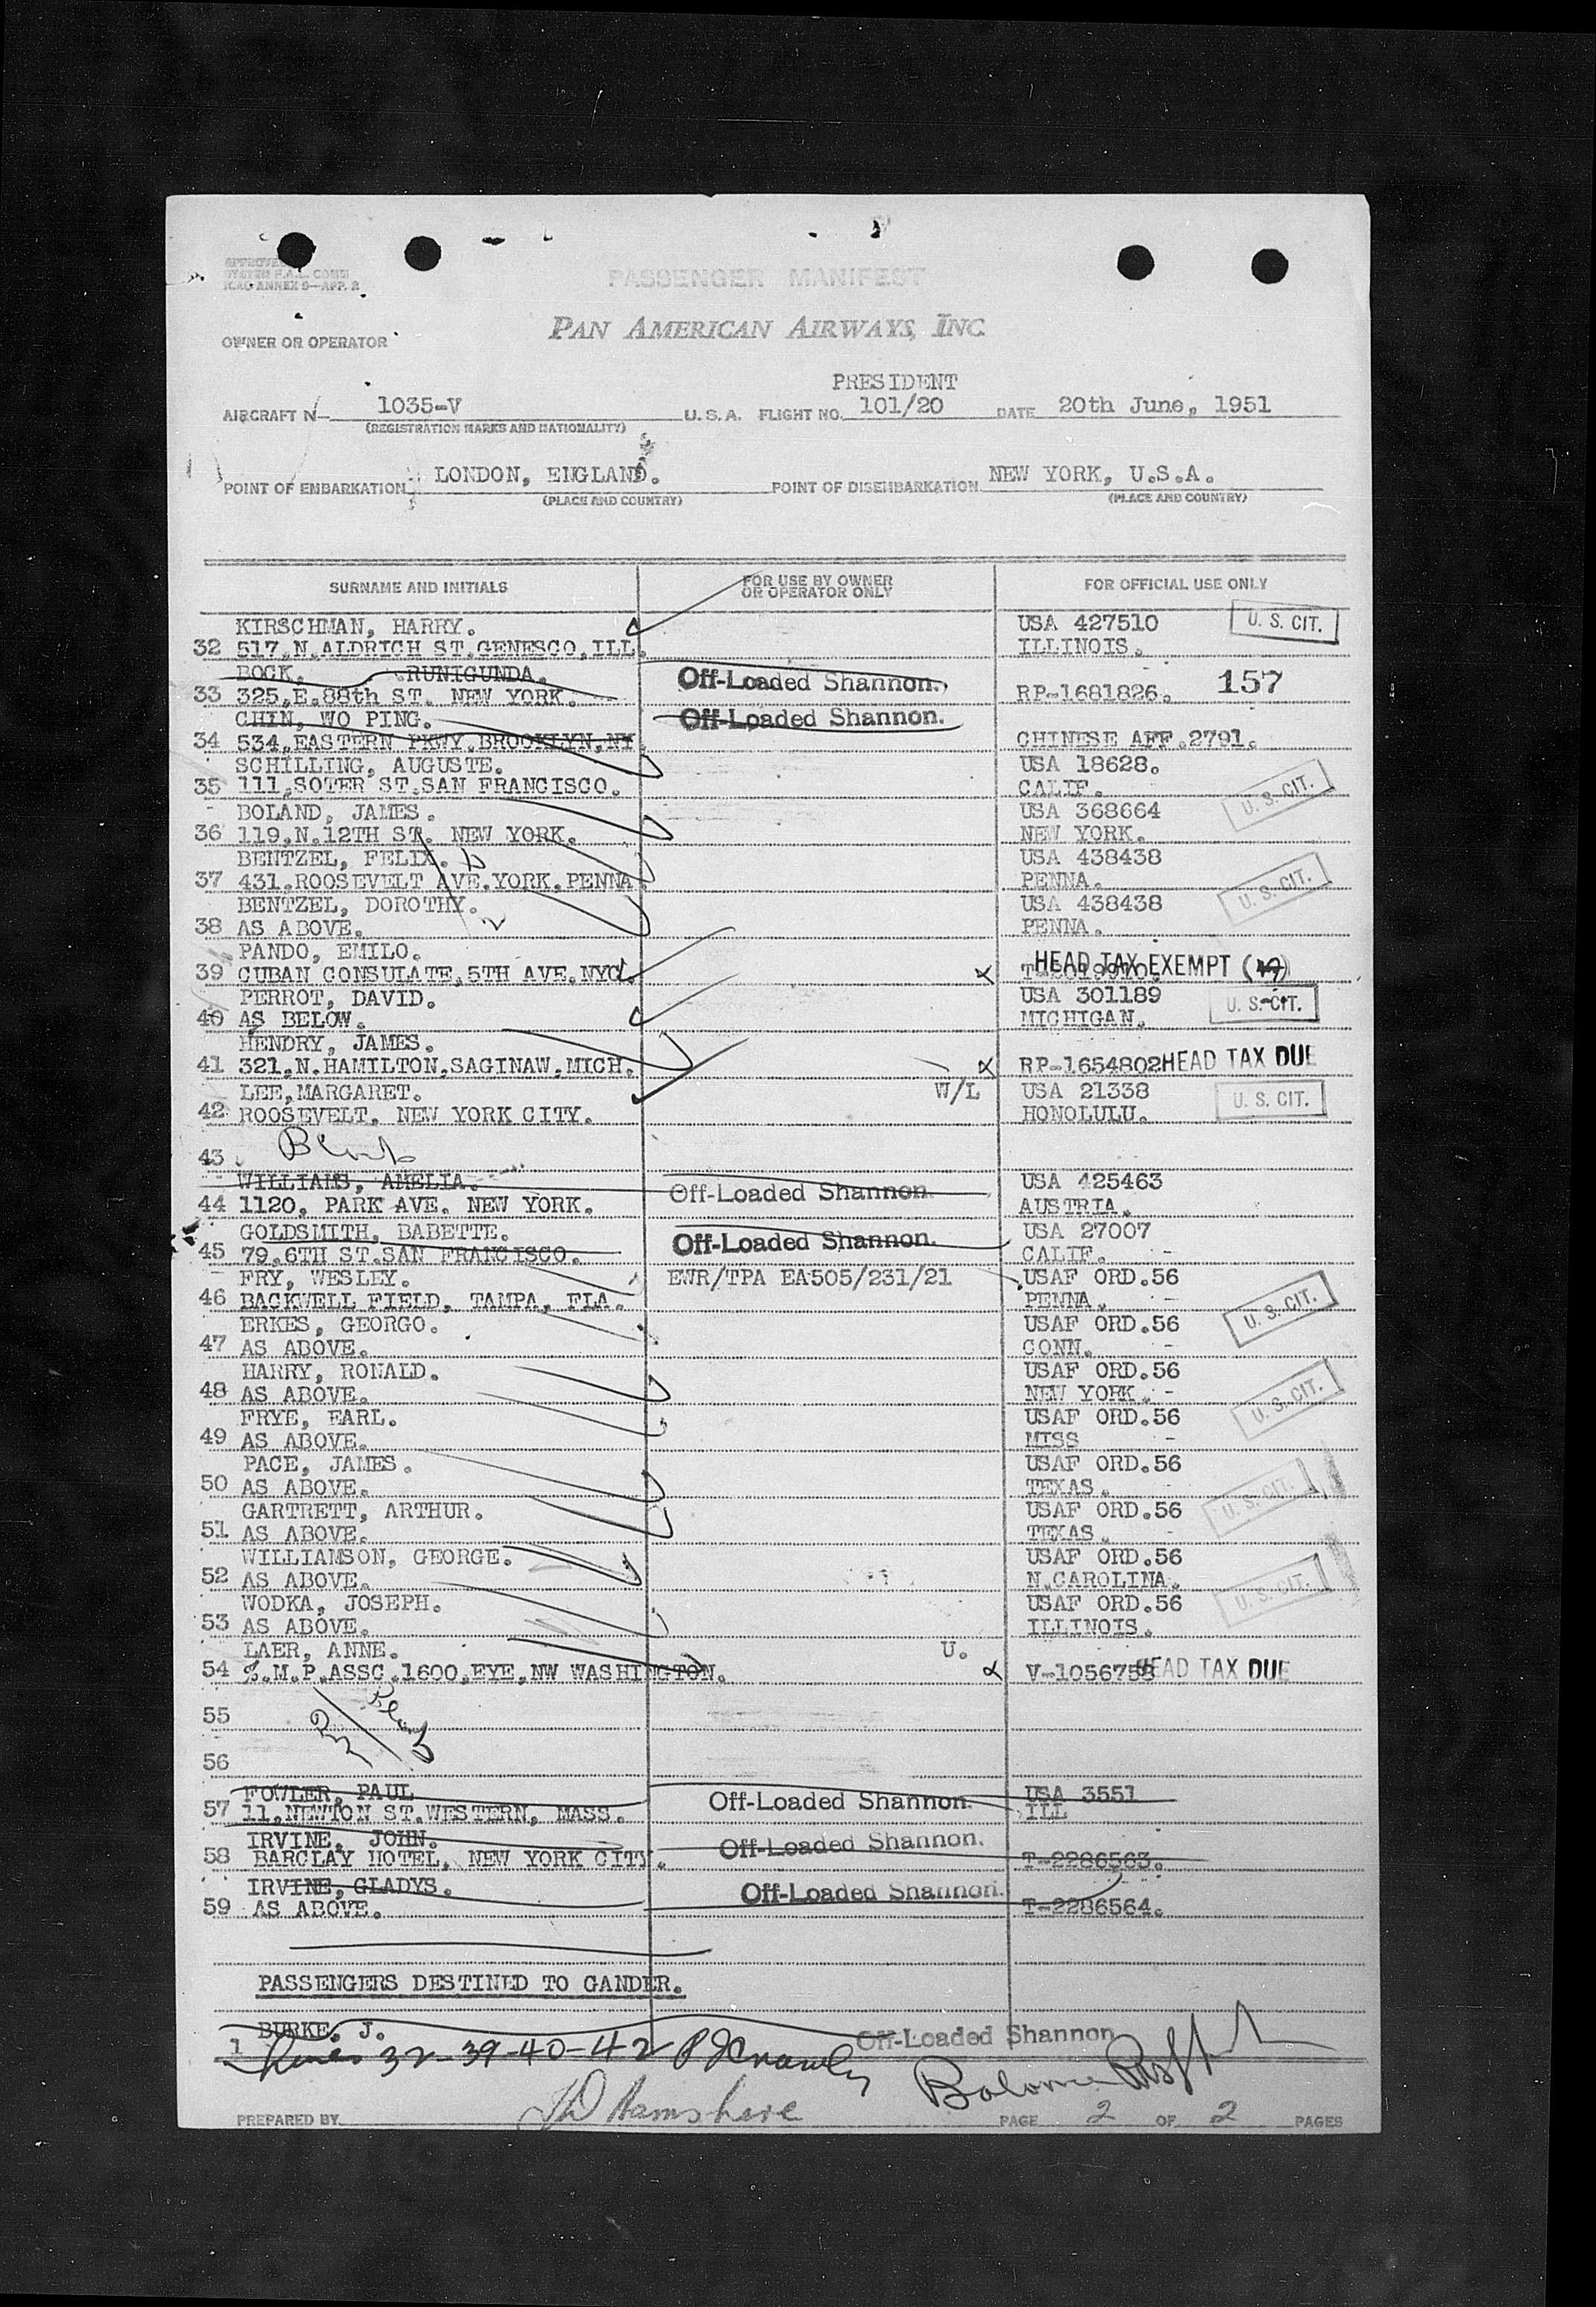 APPROVED
SYSTEM F.A.L. COMM
ICAO ANNEX 9—APP. 2
PASSENGER MANIFEST
PAN AMERICAN AIRWAYS, INC
OWNER OR OPERATOR
PRESIDENT
AIRCRAFT N— 1035-V U.S.A. FLIGHT NO. 101/20 DATE 20th June, 1951
(REGISTRATION MARKS AND NATIONALITY)
POINT OF EMBARKATION LONDON, ENGLAND. POINT OF DISEMBARKATION NEW YORK, U.S.A.
(PLACE AND COUNTRY) (PLACE AND COUNTRY)
SURNAME AND INITIALS FOR USE BY OWNER OR OPERATOR ONLY FOR OFFICIAL USE ONLY
KIRSCHMAN, HARRY. USA 427510 U. S. CIT.
32 517.N.ALDRICH ST.GENESCO.ILL. ILLINOIS.
BOCK. RUNIGUNDA. Off-Loaded Shannon.
33 325.E.88th ST. NEW YORK. RP-1681826. 157
CHIN, WO PING. Off-Loaded Shannon.
34 534.EASTERN PKWY.BROOKLYN.NY CHINESE AFF.2791.
SCHILLING, AUGUSTE. USA 18628.
35 111.SOTER ST.SAN FRANCISCO. CALIF. U. S. CIT.
BOLAND, JAMES. USA 368664
36 119.N.12TH ST. NEW YORK. NEW YORK.
BENTZEL, FELIX. USA 438438
37 431.ROOSEVELT AVE.YORK.PENNA. PENNA. U. S. CIT.
BENTZEL, DOROTHY. USA 438438
38 AS ABOVE. PENNA.
PANDO, EMILO. HEAD TAX EXEMPT
39 CUBAN CONSULATE,5TH AVE.NYC.
PERROT, DAVID. USA 301189 U. S. CIT.
40 AS BELOW. MICHIGAN.
HENDRY, JAMES.
41 321.N.HAMILTON.SAGINAW.MICH. RP-1654802 HEAD TAX DUE
LEE,MARGARET. W/L USA 21338 U. S. CIT.
42 ROOSEVELT. NEW YORK CITY. HONOLULU.
43 Blank
WILLIAMS, AMELIA. Off-Loaded Shannon. USA 425463
44 1120. PARK AVE. NEW YORK. AUSTRIA.
GOLDSMITH, BABETTE. Off-Loaded Shannon. USA 27007
45 79.6TH ST.SAN FRANCISCO. CALIF.
FRY, WESLEY. EWR/TPA EA505/231/21 USAF ORD.56
46 BACKWELL FIELD, TAMPA, FLA. PENNA. U. S. CIT.
ERKES, GEORGO. USAF ORD.56
47 AS ABOVE. CONN.
HARRY, RONALD. USAF ORD.56
48 AS ABOVE. NEW YORK. U. S. CIT.
FRYE, EARL. USAF ORD.56
49 AS ABOVE. MISS
PACE, JAMES. USAF ORD.56
50 AS ABOVE. TEXAS. U. S. CIT.
GARTRETT, ARTHUR. USAF ORD.56
51 AS ABOVE. TEXAS.
WILLIAMSON, GEORGE. USAF ORD.56
52 AS ABOVE. N.CAROLINA. U. S. CIT.
WODKA, JOSEPH. USAF ORD.56
53 AS ABOVE. ILLINOIS.
LAER, ANNE. U.
54 %.M.P.ASSC.1600.EYE.NW WASHINGTON. V-1056758 HEAD TAX DUE
55 Blank
56
FOWLER, PAUL Off-Loaded Shannon. USA 3551
57 11.NEWTON ST.WESTERN, MASS. ILL
IRVINE, JOHN. Off-Loaded Shannon.
58 BARCLAY HOTEL, NEW YORK CITY. T-2286563.
IRVINE, GLADYS. Off-Loaded Shannon.
59 AS ABOVE. T-2286564.
PASSENGERS DESTINED TO GANDER.
BURKE. J. Off-Loaded Shannon
1 Lines 32-39-40-42
PREPARED BY PAGE 2 OF 2 PAGES